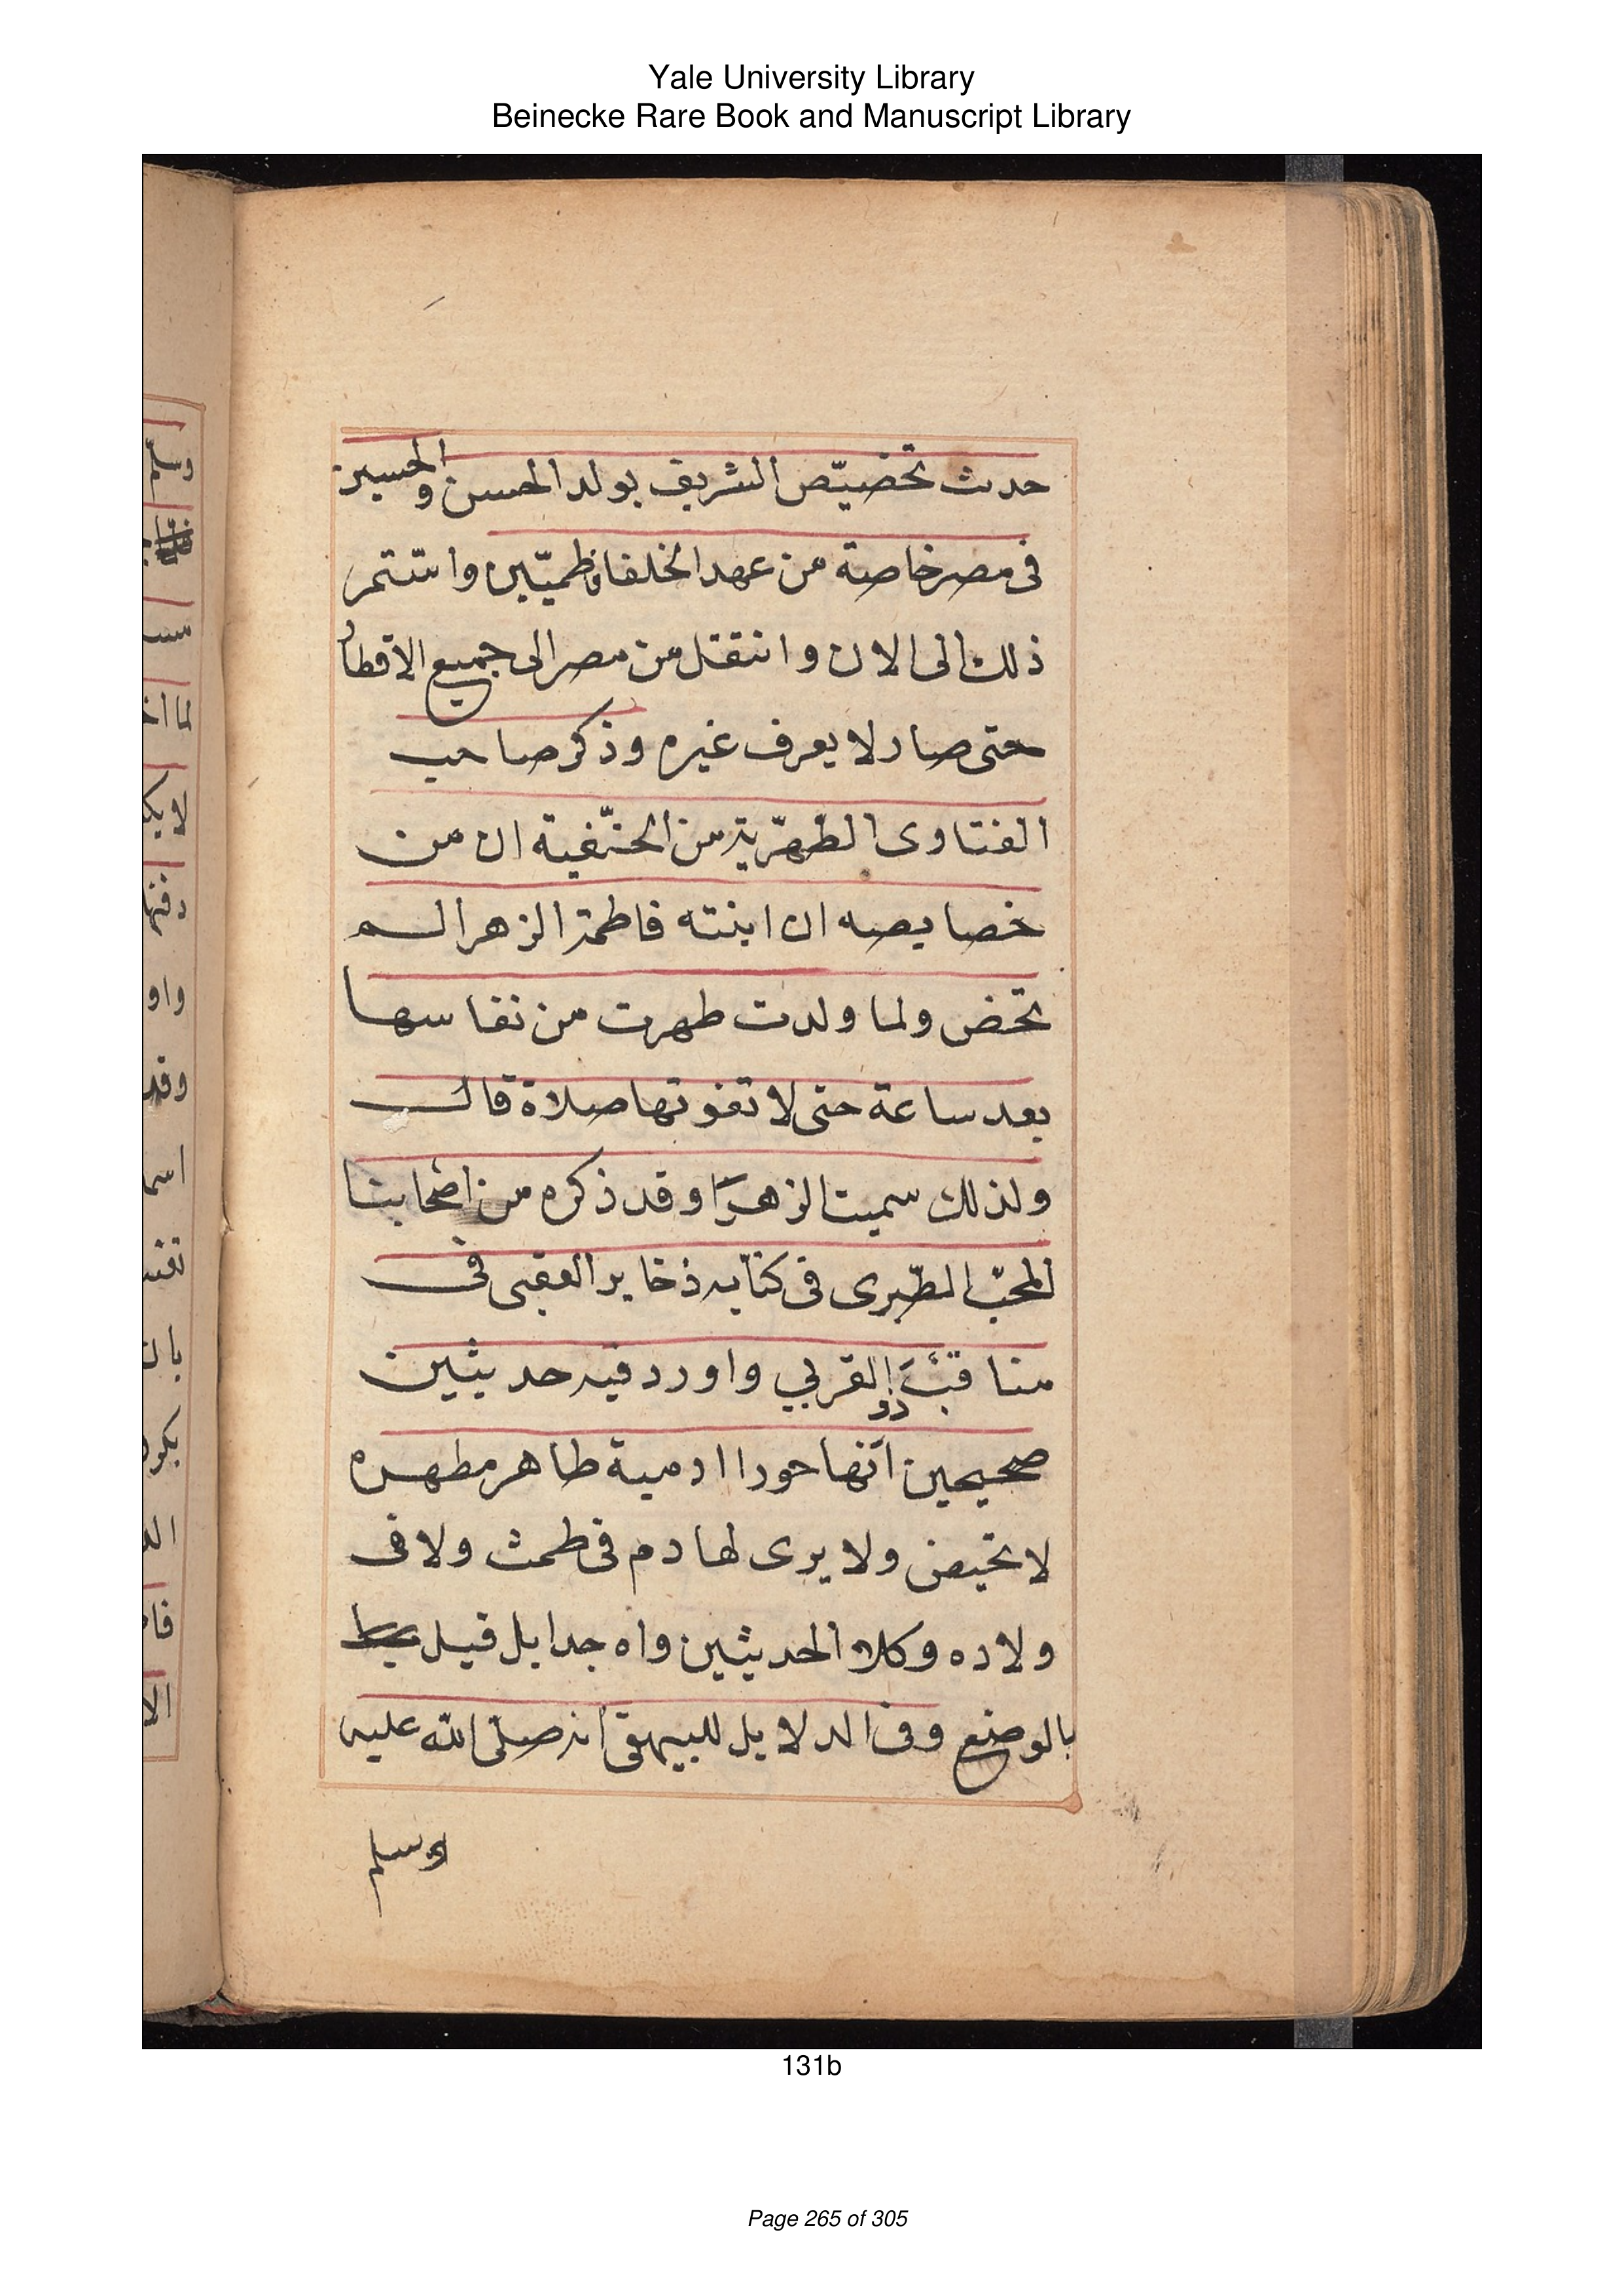 Yale University Library
Beinecke Rare Book and Manuscript Library
حدث تخصيّص الشريف بولد الحسن والحسين
فى مصر خاصة من عهد الخلفا فاظميّين واستّمر
ذلك الى الان وانتقل من مصر الى جميع الاقطار
حتى صار لا يعرف غيره وذكر صاحب
الفتاوى الظهّرية من الحنّفية ان من
خصايصه ان ابنته فاطمة الزهرا لم
تحض ولما ولدت طهرت من نفاسها
بعد ساعة حتى لا تفوتها صلاة قال
ولذلك سميت الزهرّا وقد ذكره من اضحابنا
المحبّ الطبّرى فى كتابه ذخاير العقبى فى
مناقب ذو القربي واورد فيه حديثين
صحيحين انّها حورا ادمية طاهر مطهره
لا تحيض ولا يرى لها دم فى طمث ولا فى
ولاده وكلا الحديثين واه جدا بل قيل
بالوضع وفى الدلايل للبيهقى انه صلى الله عليه
وسلم
131b
Page 265 of 305